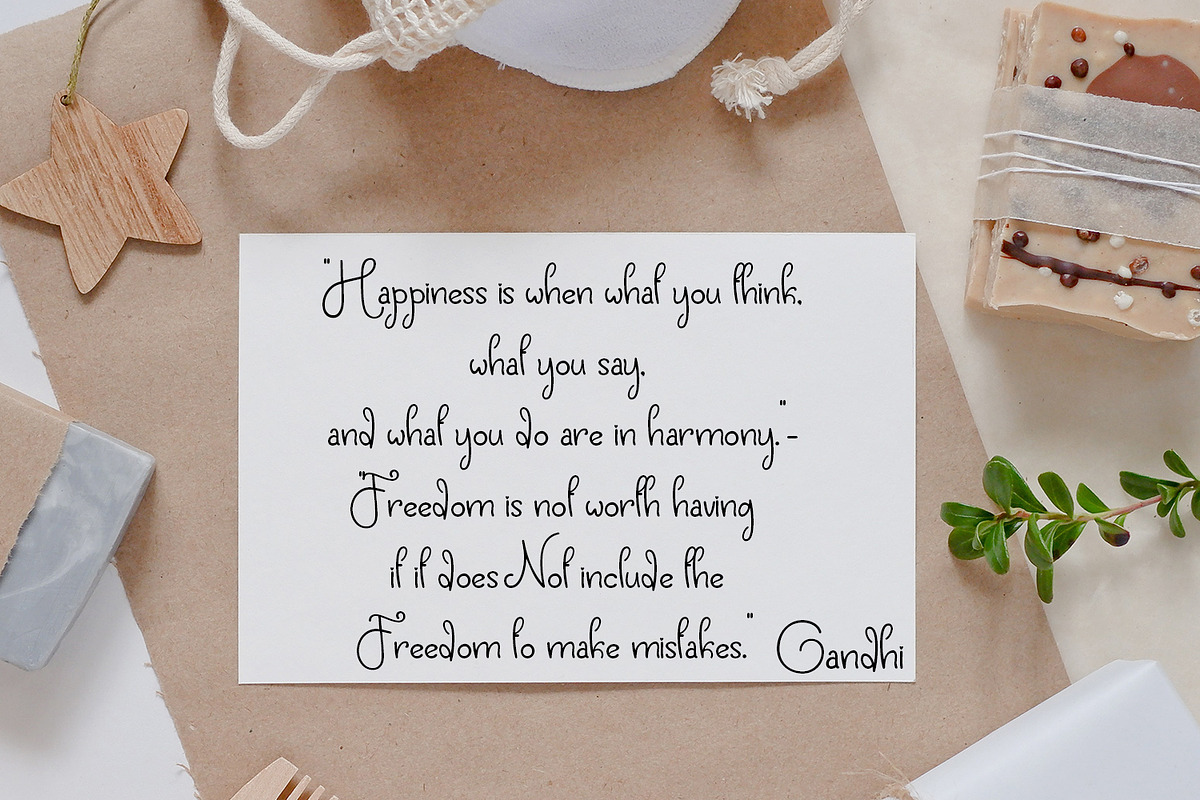 "Happiness is when what you think,
what you say,
and what you do are in harmony." -
"Freedom is not worth having
if it does Not include the
Freedom to make mistakes." Gandhi